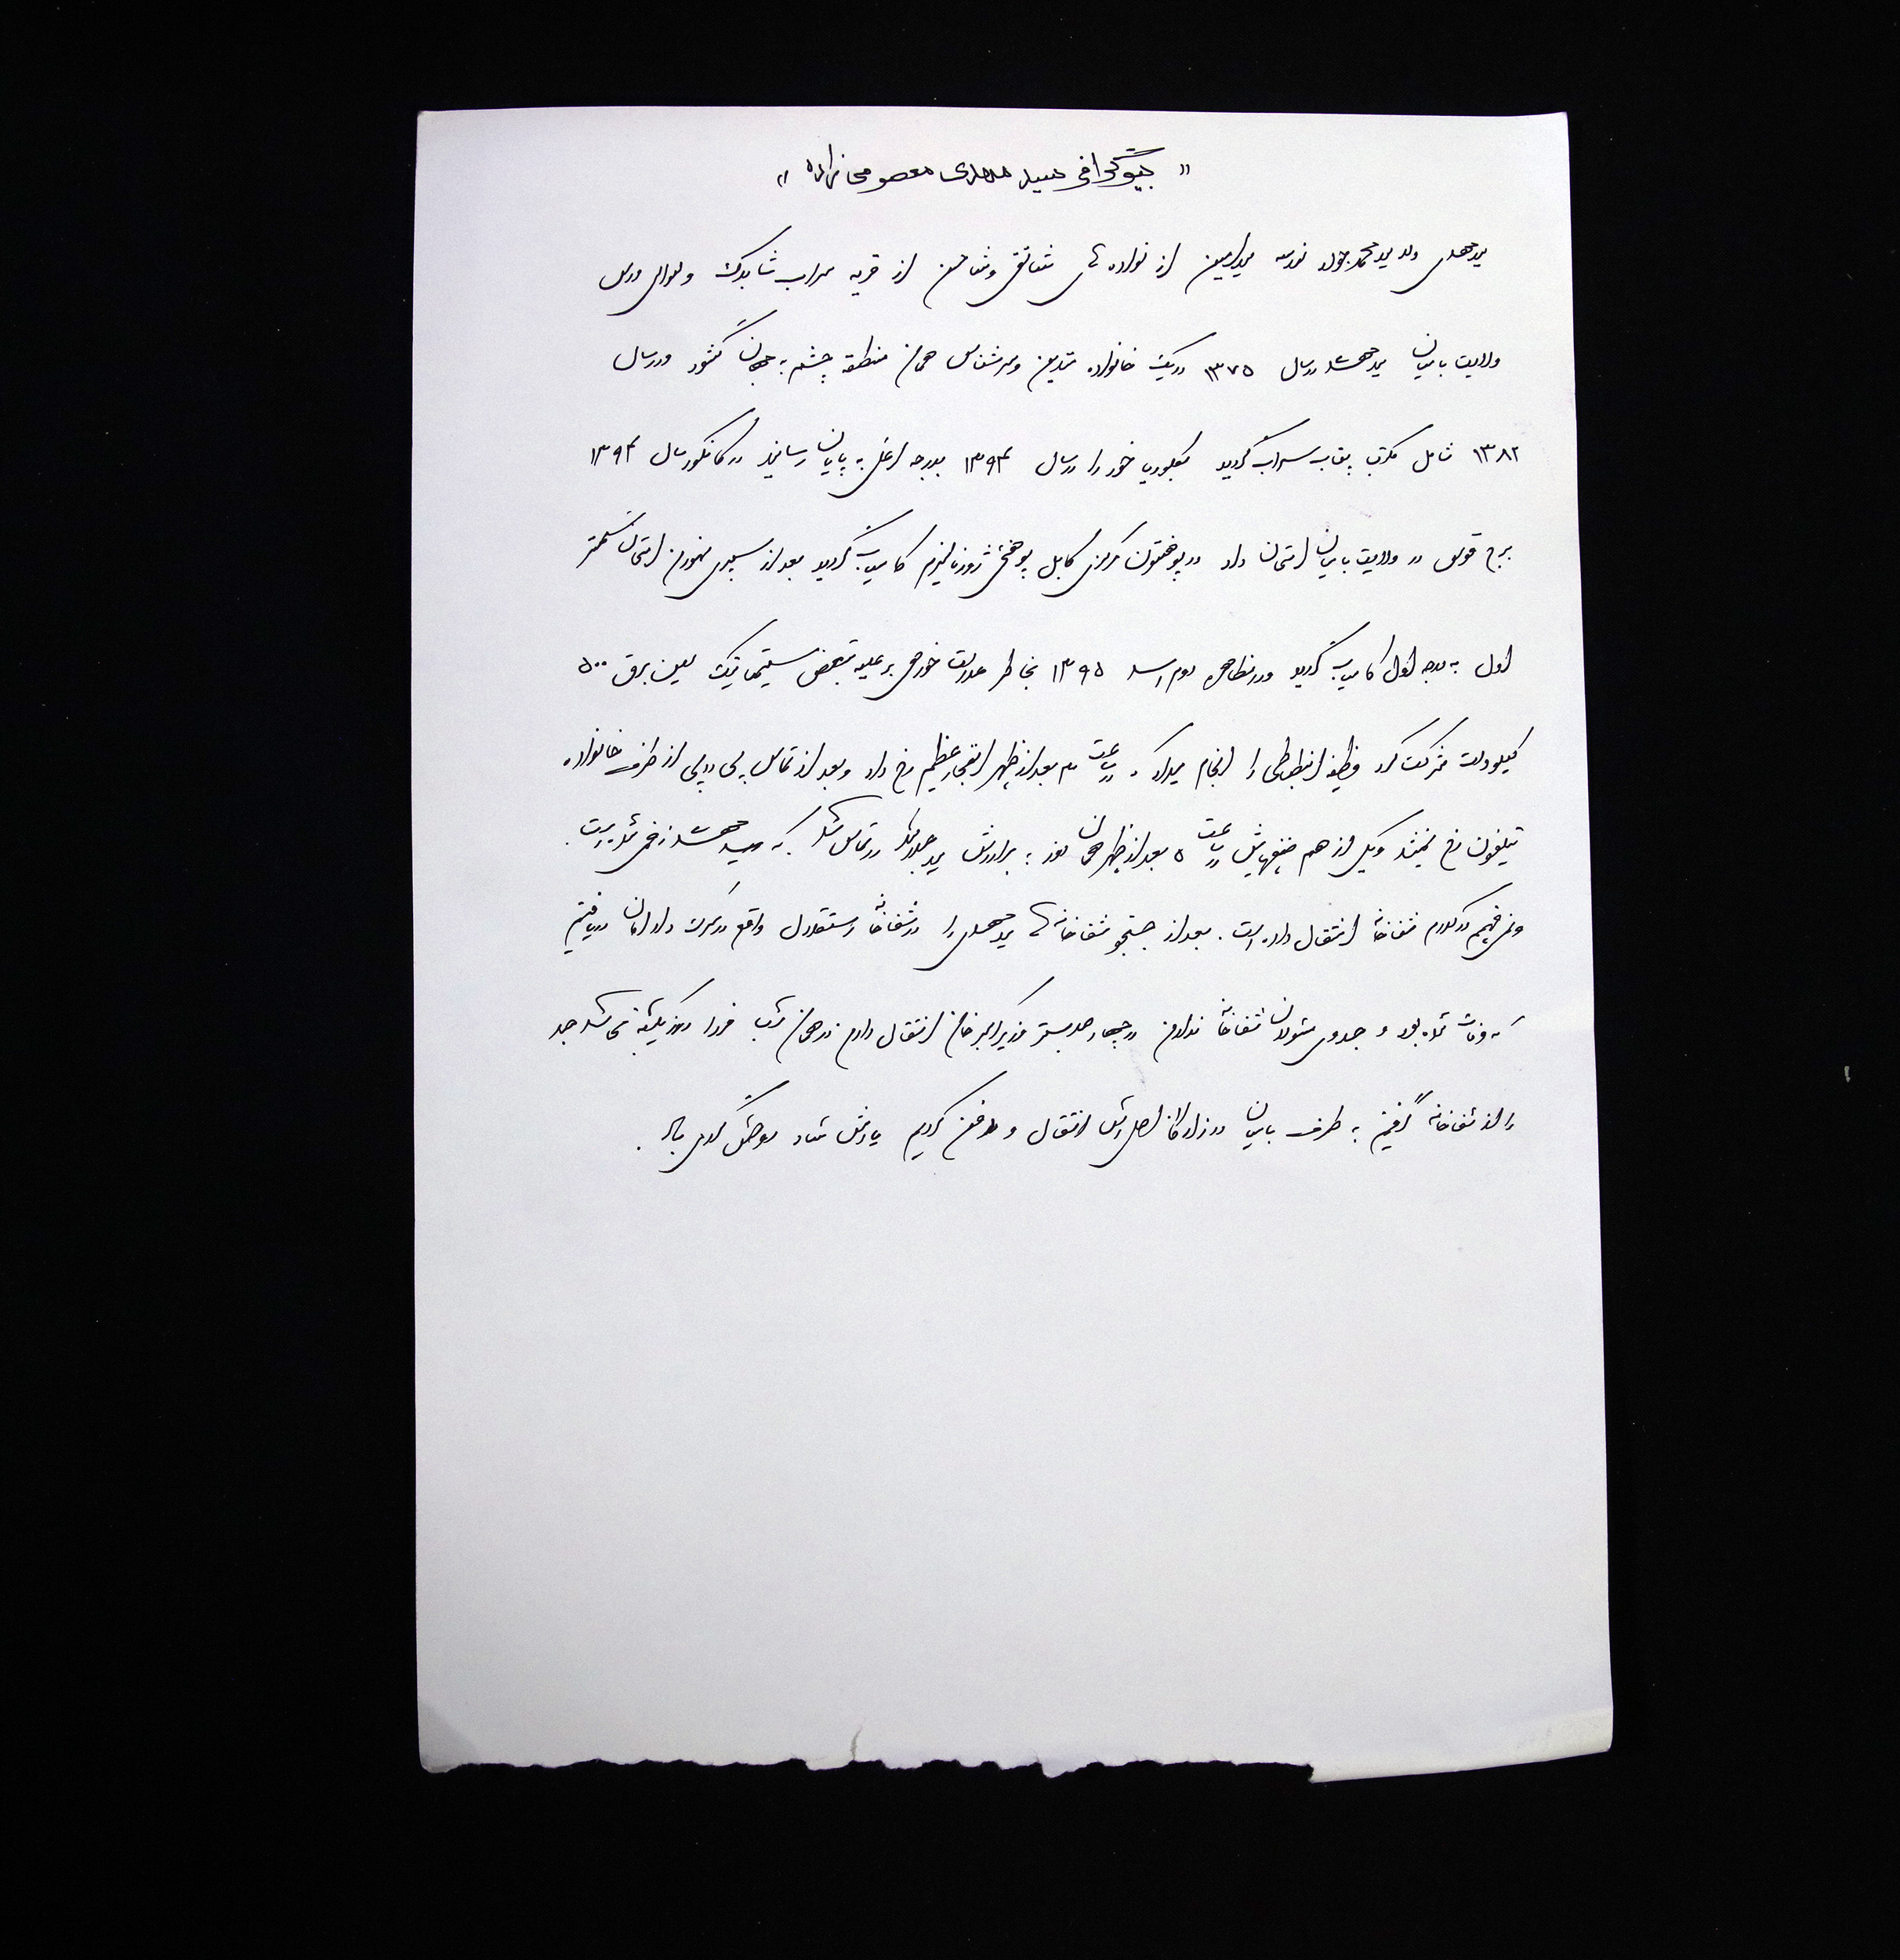 " بیوگرافی سید مهدی معصومی زاده "
سید مهدی ولد سید محمد جواد نواسه سید امین از نواده های از قریه سراب شابدک ولسوالی ورس
ولایت بامیان سید مهدی در سال ۱۳۷۵ در یک خانواده متدین و سرشناس همان منطقه چشم به جهان گشود در سال
۱۳۸۲ شامل مکتب سراب گردید بکلوریا خود را در سال ۱۳۹۴ بدرجه اعلی به پایان رسانید در کانکور سال ۱۳۹۴
برج قوس در ولایت بامیان امتحان داد در پوهنتون مرکزی کابل پوهنځی ژورنالیزم کامیاب گردید بعد از سپری نمودن امتحان سمستر
اول به درجه اول کامیاب گردید و در تظاهره دوم اسد ۱۳۹۵ بخاطر عدالت خواهی بر علیه تبعض سیستماتیک لین برق ۵۰۰
کیلوولت شرکت کرد وظیفه انظباطی را انجام میداد که در ساعت ۳ بعد از ظهر انفجار عظیم رخ داد و بعد از تماس پی در پی از طرف خانواده
تیلفون رخ نمیشد و یکی از هم صنفیهایش در ساعت ۵ بعد از ظهر همان روز با برادرش سید در تماس شد که سید مهدی زخمی شده است.
و نمی فهمیم در کدام شفاخانه انتقال داده است. بعد از جستجو شفاخانه ها سید مهدی را در شفاخانه استقلال واقع در سرک دارالامان دریافتیم
که وفات شده بود و جسد وی مسئولان شفاخانه ندادن در چهارصد بستر وزیر اکبر خان انتقال دادن در همان شب فردا روز یکشنبه جسد
را از شفاخانه گرفتیم به طرف بامیان در زادگاه اصلی اش انتقال و دفن کردیم یادش شاد روحش گرامی باد.